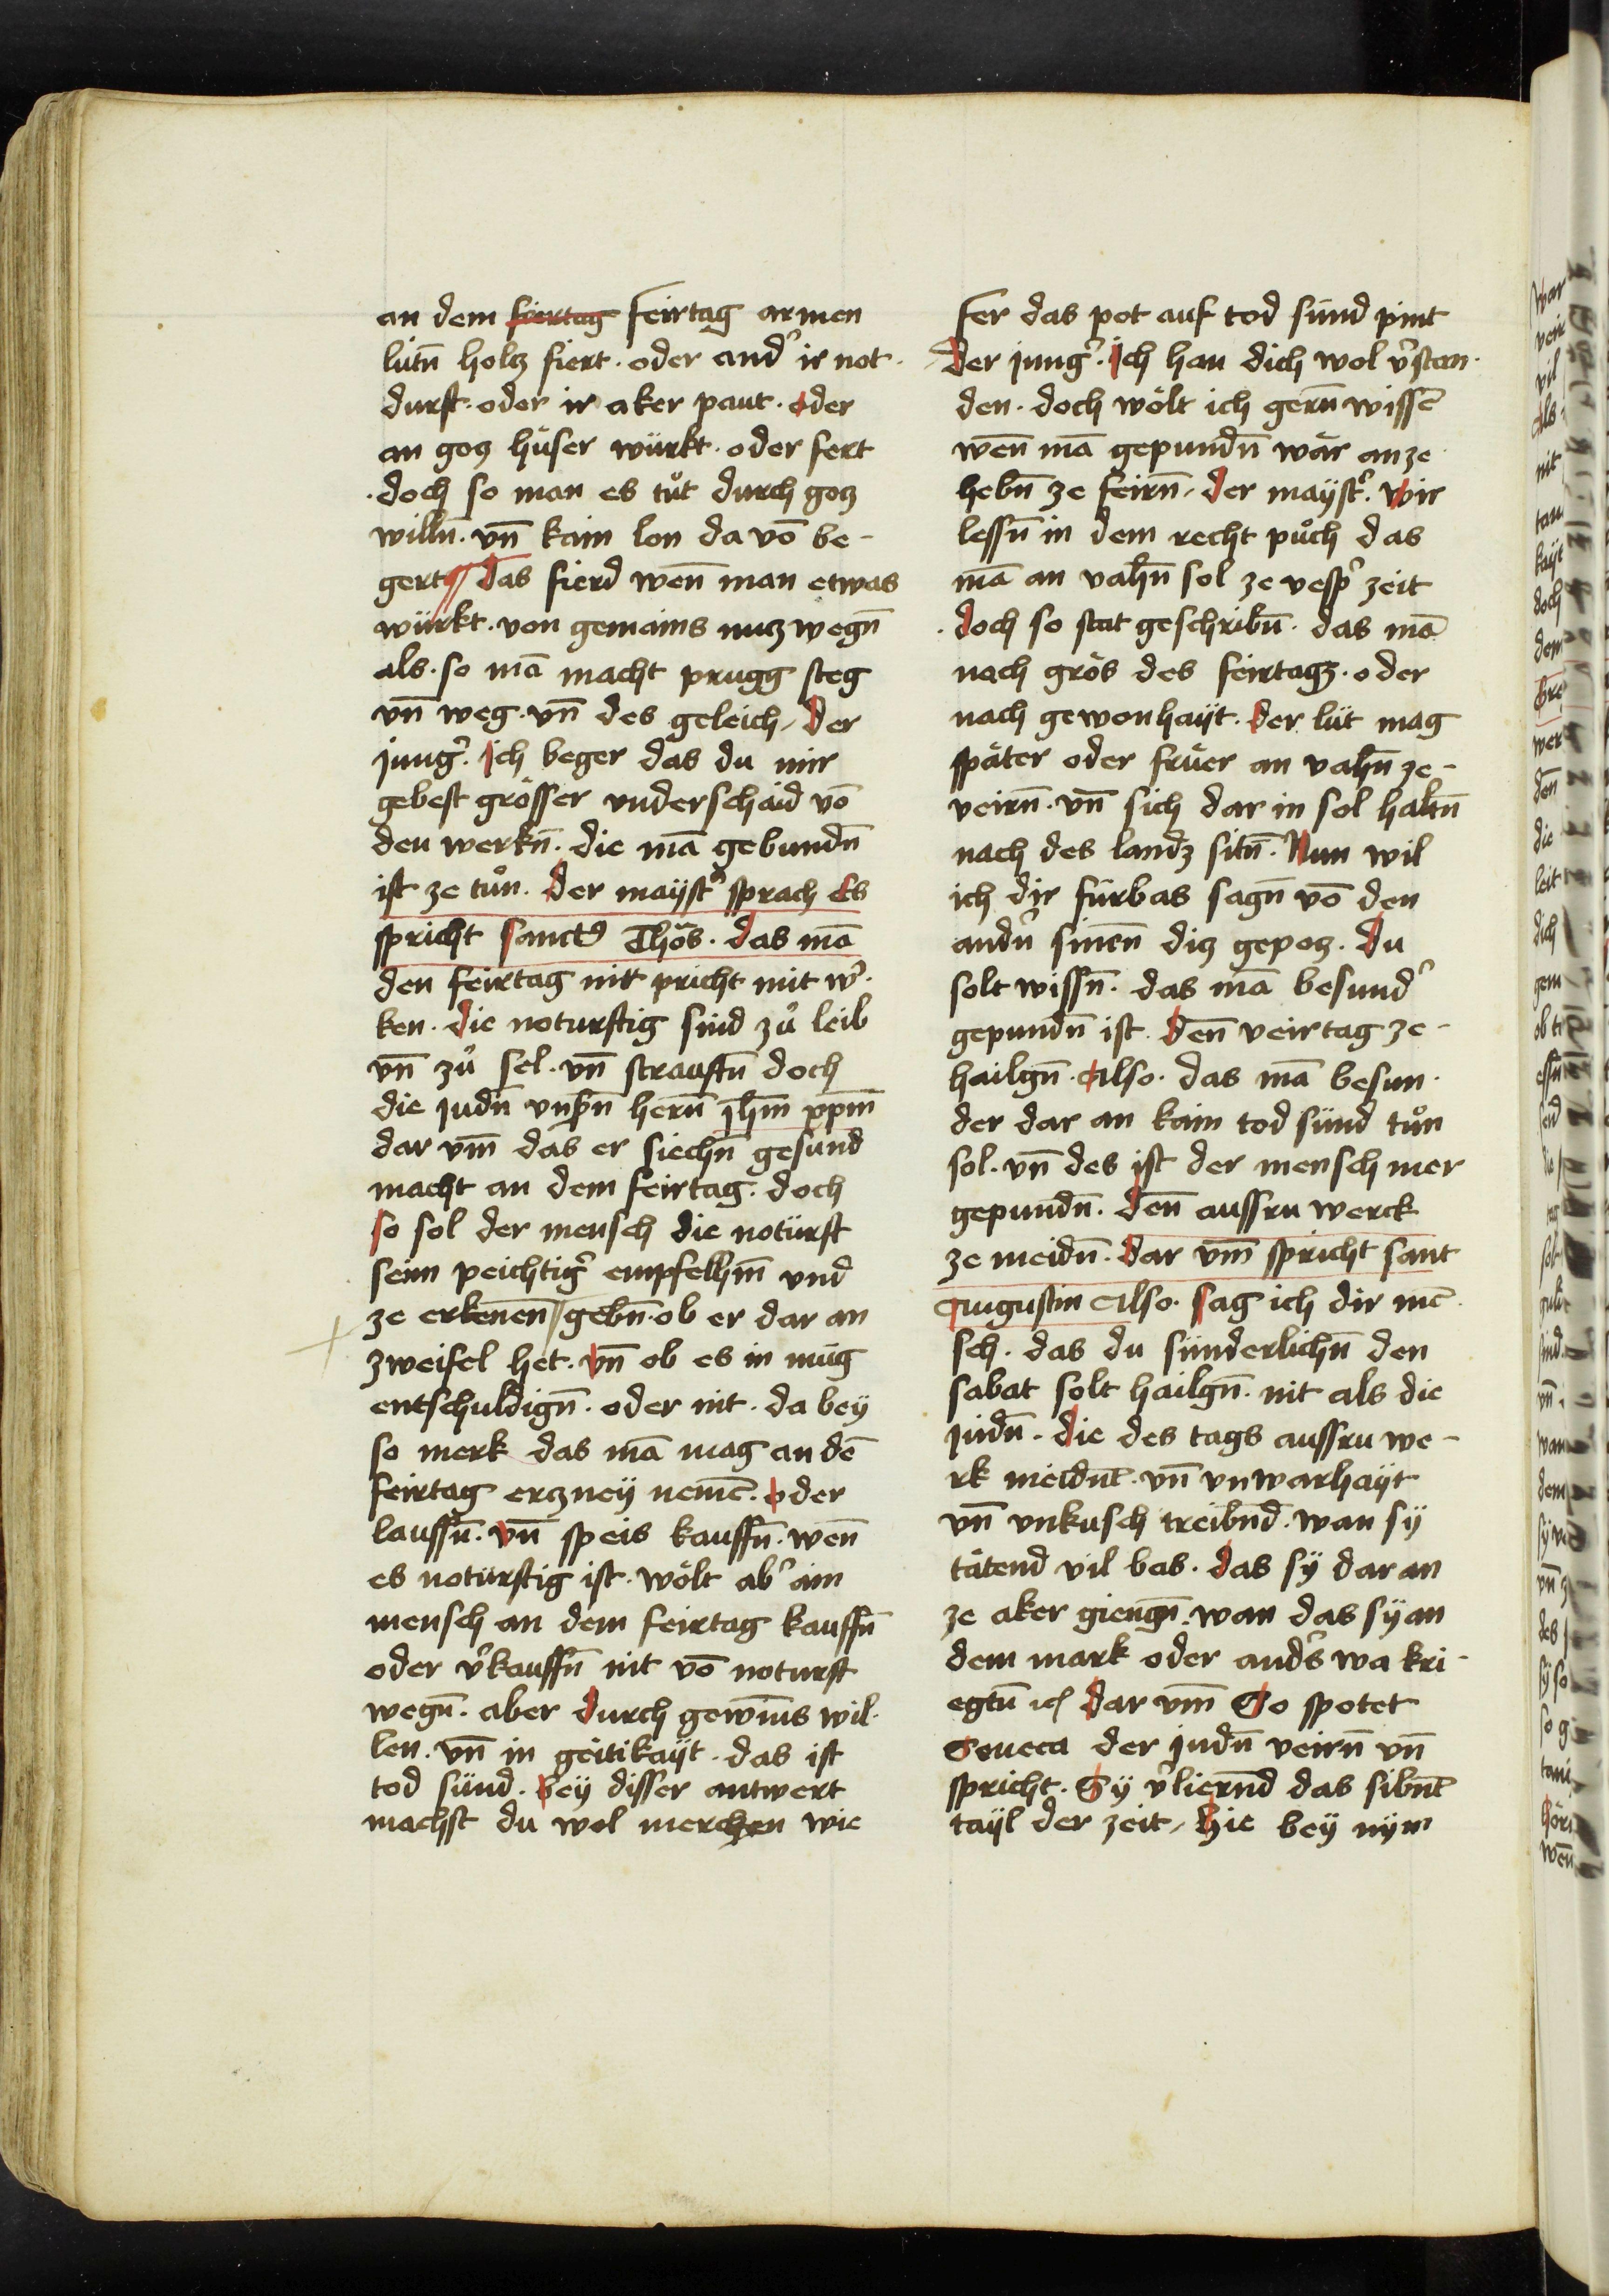 an dem fiertag feirtag armen
lütn̄ holtz fiert · oder and᷑ ir not
durft · oder ir aker paut · oder
an gotz hüser würkt · oder fert
· doch so man es tůt durch gotz
willn̄ · vn̄ kain lon da vō be-
gert das fierd wen̄ man etwas
würkt · von gemains nutz wegn̄
als · so mā macht prugg steg
vn̄ weg · vn̄ des geleich / Der
jung᷑ · Ich beger das du mir
gebest grösser vnderschaid vō
den werkn̄ · die mā gebundn̄
ist ze tůn · Der mayst᷑ sprach Es
spricht sanctꝰ Thōs · das mā
den feirtag nit pricht mit w᷑·
ken · die noturftig sind zů leib
vn̄ zů sel · vn̄ strauftn̄ doch
die judn̄ vnsern̄ hern̄ jhm̄ xpm̄
dar vm̄ das er siechn̄ gesund
macht an dem feirtag · doch
so sol der mensch die notürft
seim peichtig᷑ empfelhn̄ vnd
ze erkenen̄ / gebn̄ · ob er dar an
zweifel het · vn̄ ob es in müg
entschuldign̄ · oder nit · da bey
so merk das mā mag an dē
feirtag erzney nemē · oder
lauffn̄ · vn̄ speis kauffn̄ · wen̄
es notürftig ist · wölt ab᷑ ain
mensch an dem feirtag kauffn̄
oder v᷑kauffn̄ nit vō noturft
wegn̄ · aber durch gewīns wil·
len · vn̄ in geitikayt · das ist
tod sünd · bey disser antwert
machst du wol merchen wie
fer das pot auf tod sünd pint
Der jung᷑ · Ich han dich wol v᷑stan·
den · doch wölt ich gern̄ wissē
wen̄ mā gepundn̄ wär an ze
hebn̄ ze feirn̄ / der mayst᷑ · Wir
lessn̄ in dem recht půch das
mā an vahn̄ sol ze vesp᷑ zeit
· doch so stat geschribn̄ · das mā
nach grös des feirtagz · oder
nach gewonhayt · der lüt mag
später oder früer an vahn̄ ze-
veirn̄ · vn̄ sich dar in sol haltn̄
nach des landz sitn̄ · Nun wil
ich dir fürbas sagn̄ vō den
andn᷑ sinen̄ diz gepotz · Du
solt wissn̄ · das mā besund᷑
gepundn̄ ist · Den̄ veirtag ze-
hailgn̄ · Also · das mā besun·
der dar an kain tod sünd tůn
sol · vn̄ des ist der mensch mer
gepundn̄ · den̄ aussru werck
ze meidn̄ · Dar vm̄ spricht sant
Augustin Also · sag ich dir mē·
sch · das du sünderlichn̄ den
sabat solt hailgn̄ · nit als die
judn̄ · die des tags aussru we-
rk meidnt̄ · vn̄ vnwarhayt
vn̄ vnkusch treibnd̄ · wan sy
tätend vil bas · das sy dar an
ze aker giengn̄ · wan das sy an
dem mark oder and᷑s wa kri·
egtn̄ ⁊c̄ Dar vm̄ So spotet
Seneca der judn̄ veirn̄ vn̄
spricht · Sy v᷑liernd̄ das sibnt̄
tayl der zeit / Hie bey nym